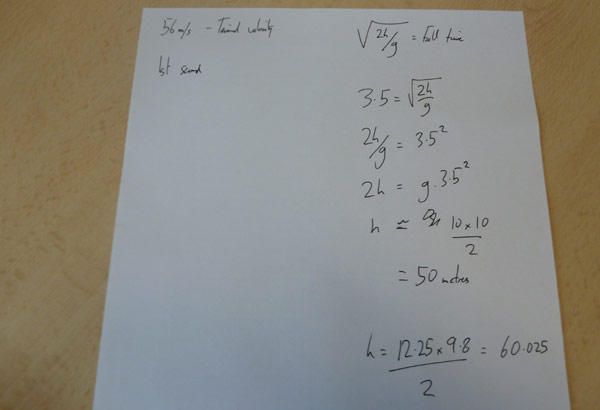 56 m/s - Terminal velocity
1st second
√2h/g = Fall time
3.5 = √2h/g
2h/g = 3.5²
2h = g.3.5²
h ≃ 10 x 10 / 2
= 50 metres
h = 12.25 x 9.8 / 2 = 60.025